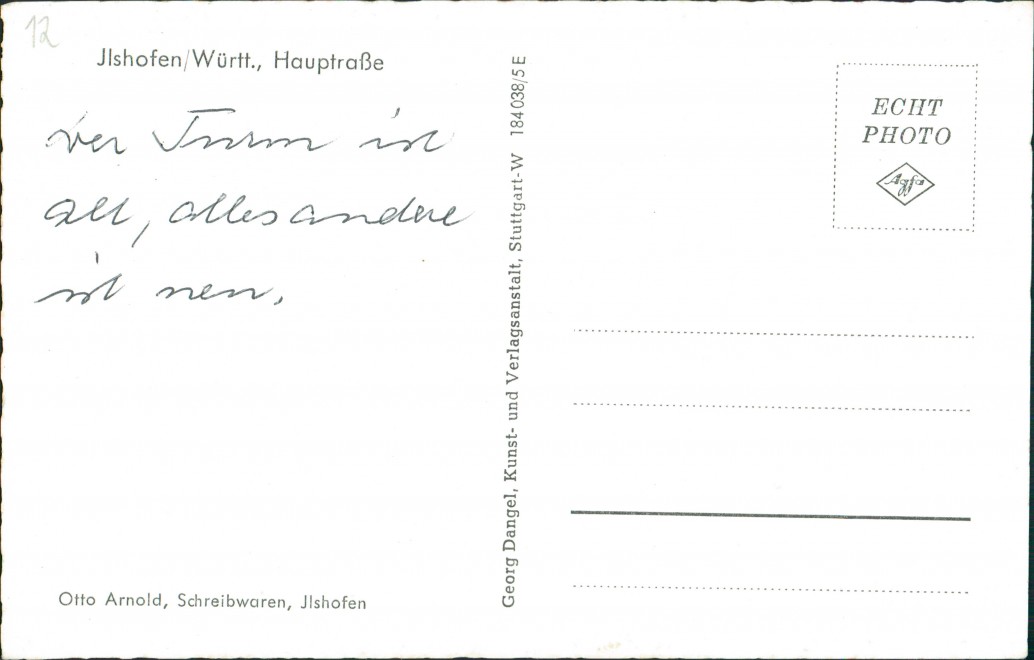 12
Jlshofen/Württ., Hauptraße
Der Turm ist
alt, alles andere
ist neu.
Otto Arnold, Schreibwaren, Jlshofen
Georg Dangel, Kunst- und Verlagsanstalt, Stuttgart-W 184038/5 E
ECHT
PHOTO
Agfa